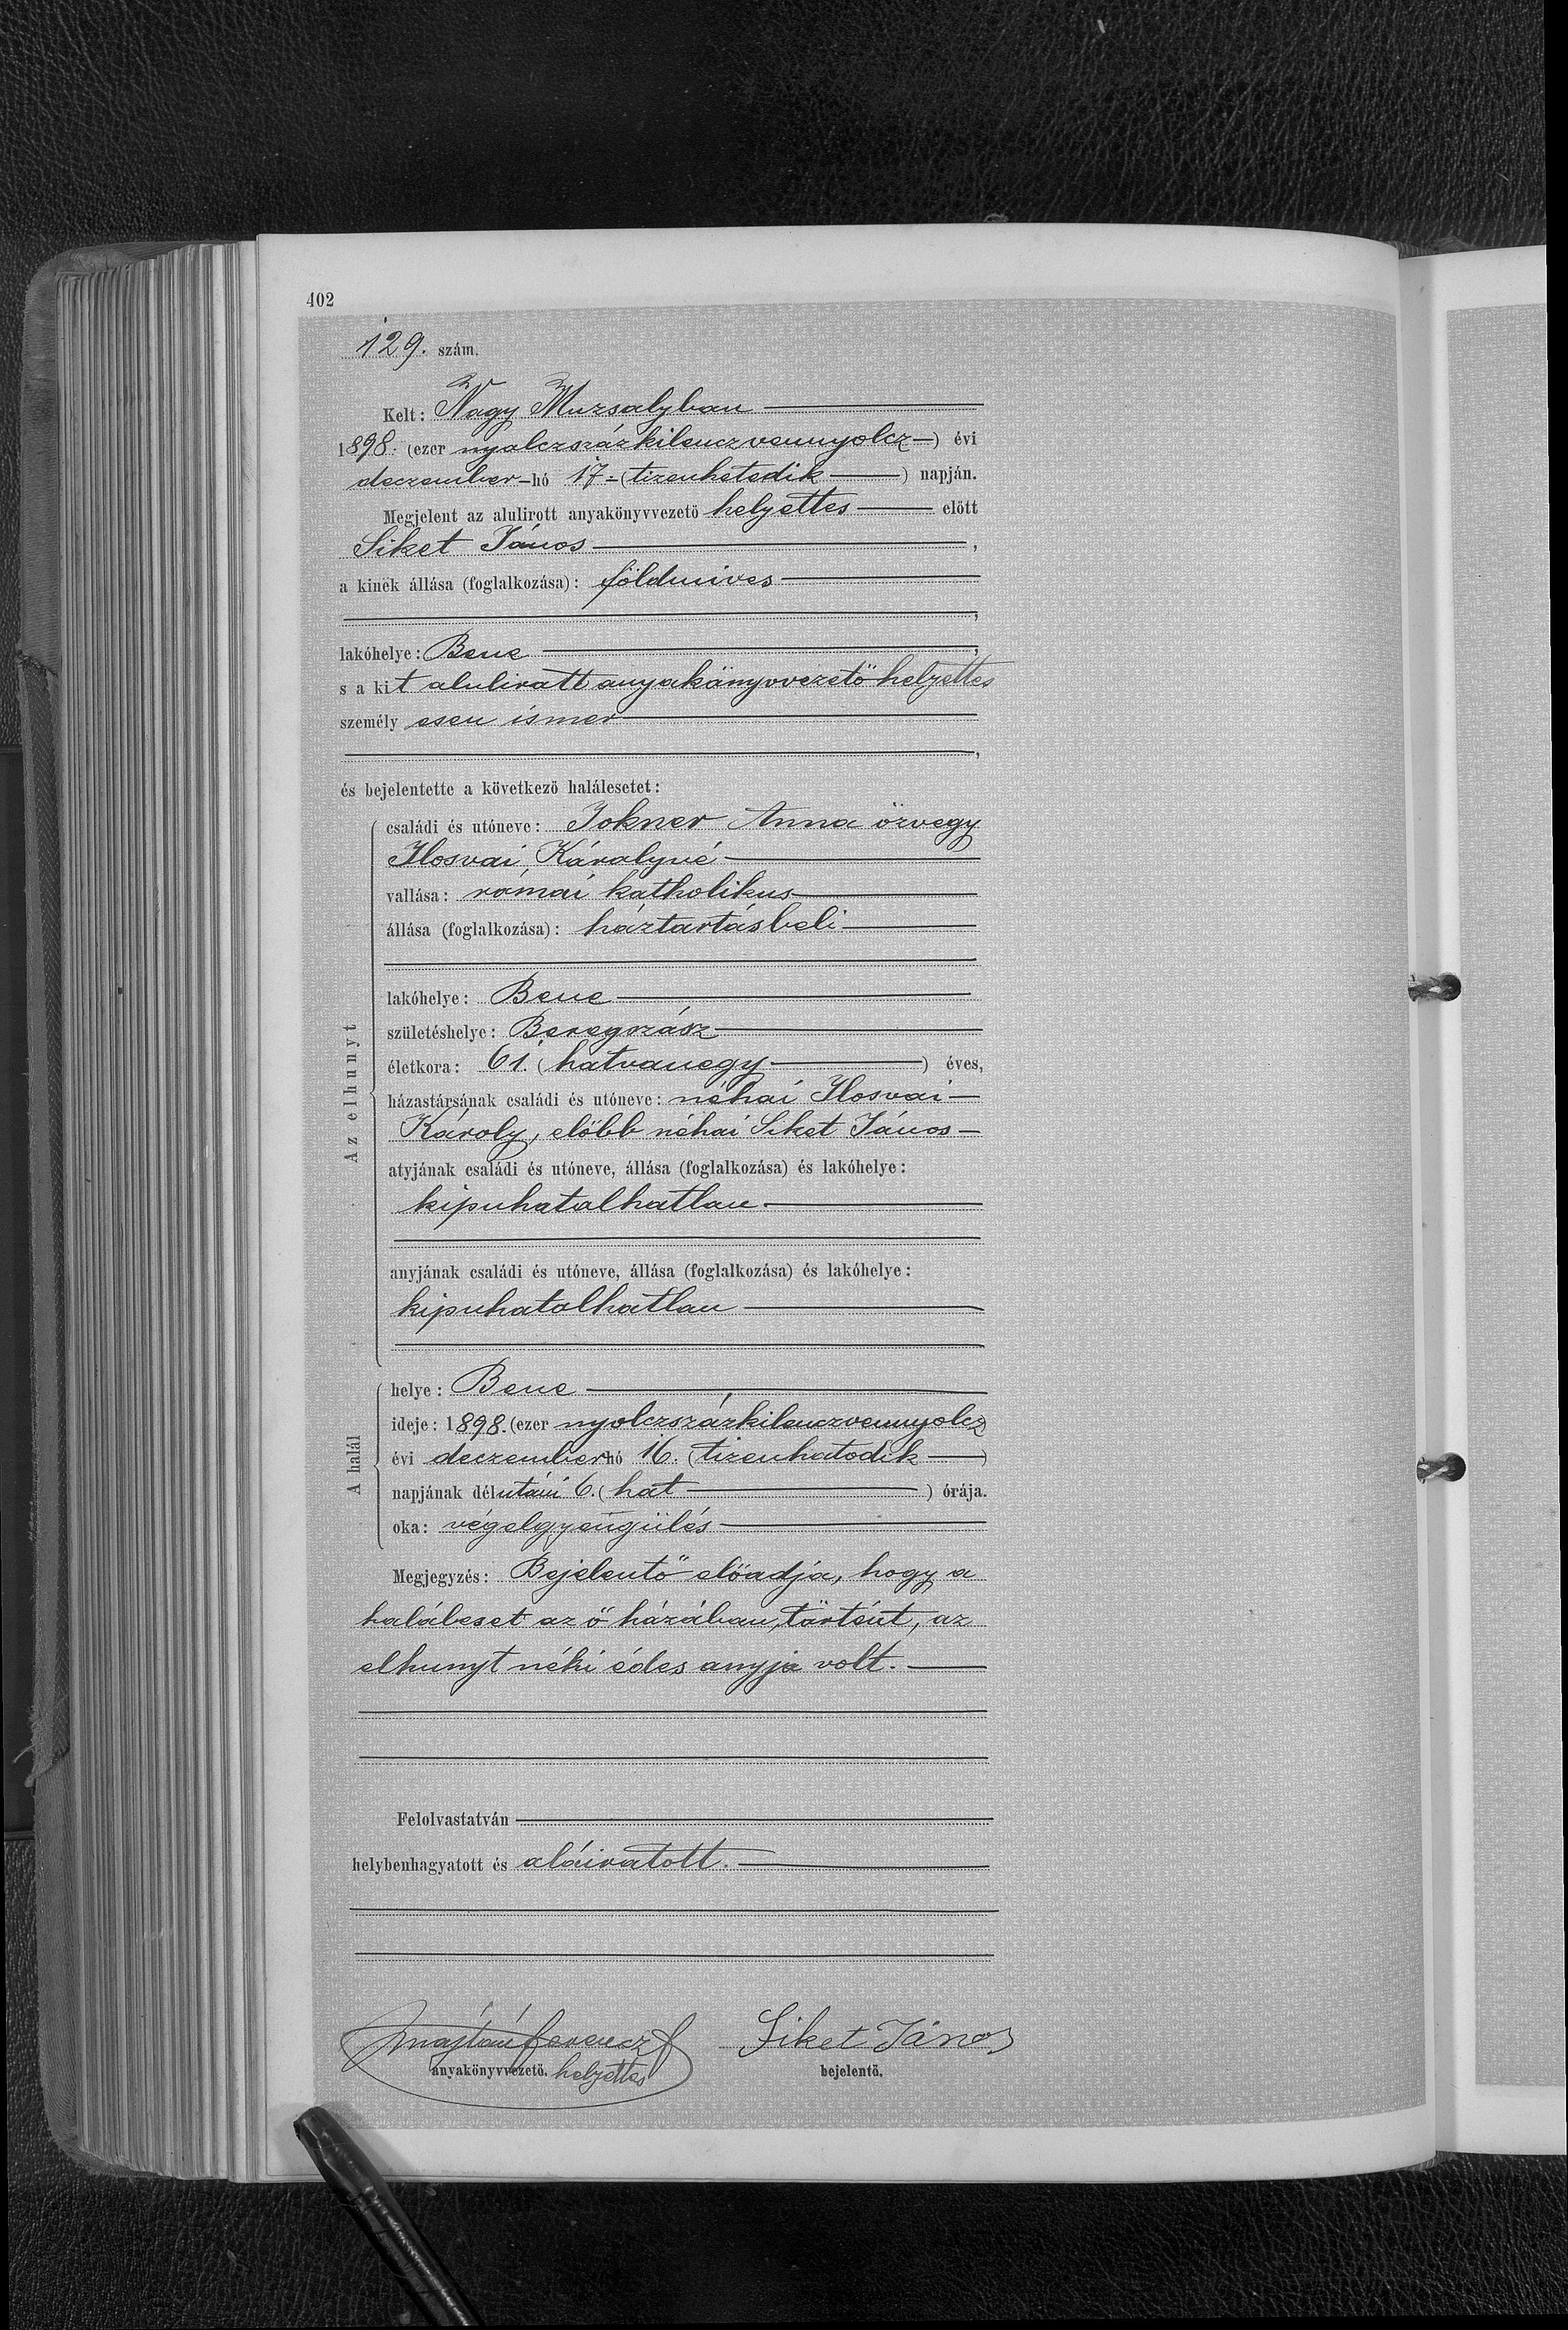 402
129. szám.
Kelt: Nagy Muzsalyban
1898. (ezer nyolczszázkilenczvennyolcz) évi
deczember hó 17. (tizenhetedik) napján.
Megjelent az alulirott anyakönyvvezető helyettes előtt
Siket János,
a kinek állása (foglalkozása): földmives
,
lakóhelye: Bene,
s a kit alulirott anyakönyvvezető helyettes
személyesen ismer
,
és bejelentette a következő halálesetet:
Az elhunyt
családi és utóneve: Jokner Anna özvegy
Ilosvai Károlyné
vallása: római katholikus
állása (foglalkozása): háztartásbeli
lakóhelye: Bene
születéshelye: Beregszász
életkora: 61. (hatvanegy) éves,
házastársának családi és utóneve: néhai Ilosvai
Károly, előbb néhai Siket János
atyjának családi és utóneve, állása (foglalkozása) és lakóhelye:
kipuhatolhatlan
anyjának családi és utóneve, állása (foglalkozása) és lakóhelye:
kipuhatolhatlan
A halál
helye: Bene
ideje: 1898. (ezer nyolczszázkilenczvennyolcz)
évi deczember hó 16. (tizenhatodik)
napjának délutáni 6. (hat) órája.
oka: végelgyengülés
Megjegyzés: Bejelentő előadja, hogy a
haláleset az ő házában, történt, az
elhunyt néki édes anyja volt.
Felolvastatván
helybenhagyatott és aláiratott.
Majtán Ferencz Siket János
anyakönyvvezető. helyettes bejelentő.